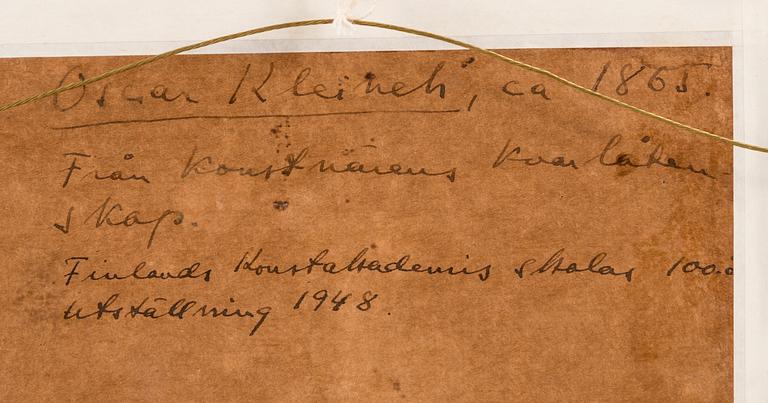 Oscar Kleineh, ca 1865.
Från konstnärens kvarlåten-
skap.
Finlands Konstakademis skolas 100.å
utställning 1948.